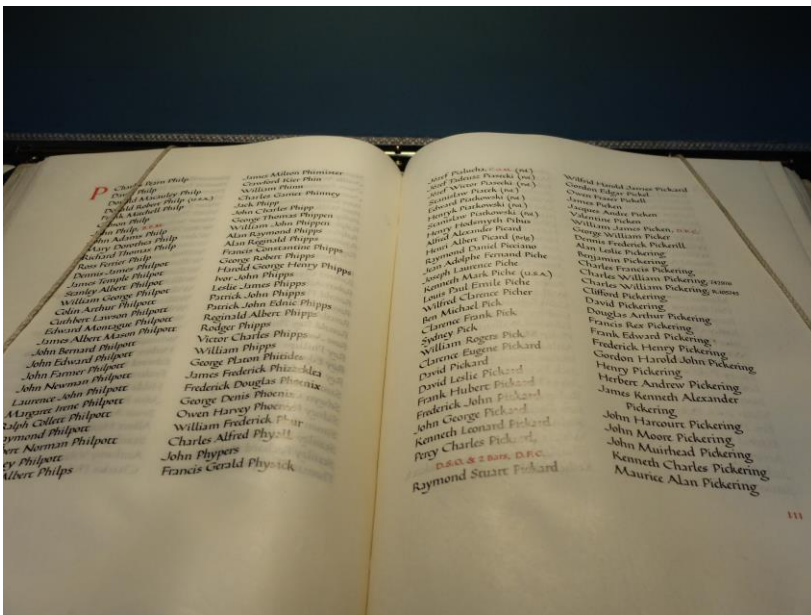 P
Philp
Philp
Donald Macauley Philp
Donald Robert Philp (U.S.A.)
Machell Philp
Philp
John Philp,
John Adams Philp
Mary Dorothea Philp
Richard Thomas Philp
Ross Ferrier Philp
Dennis James Philpot
James Temple Philpot
Stanley Albert Philpot
William George Philpot
Colin Arthur Philpott
Cuthbert Lawson Philpott
Edward Montague Philpott
James Albert Mason Philpott
John Bernard Philpott
John Edward Philpott
John Farmer Philpott
John Newman Philpott
Laurence John Philpott
Margaret Irene Philpott
Ralph Collett Philpott
Raymond Philpott
Norman Philpott
Philpott
Albert Philps
James Milton Phimister
Crawford Kier Phin
William Phinn
Charles Garnet Phinney
Jack Phipp
John Charles Phipp
George Thomas Phippen
William John Phippen
Alan Raymond Phipps
Alan Reginald Phipps
Francis Constantine Phipps
George Robert Phipps
Harold George Henry Phipps
Ivor John Phipps
Leslie James Phipps
Patrick John Phipps
Patrick John Ednic Phipps
Reginald Albert Phipps
Rodger Phipps
Victor Charles Phipps
William Phipps
George Platon Phitides
James Frederick Phizacklea
Frederick Douglas Phoenix
George Denis Phoenix
Owen Harvey Phoenix
William Frederick Phur
Charles Alfred Physall
John Phypers
Francis Gerald Physick
Józef
Józef Tadeusz Piasecki (P.A.)
Józef Wictor Piasecki (P.A.)
Stanisław (P.A.)
Edward Piatkowski (P.A.)
Henryk Piatkowski (P.A.)
Stanisław Piatkowski (P.A.)
Henry Pibus
Alfred Alexander Picard
Henri Albert Picard (Belg)
Raymond Daniel Picciano
Jean Adolphe Fernand Piche
Joseph Laurence Piche
Kenneth Mark Piche (U.S.A.)
Louis Paul Emile Piche
Wilfred Clarence Picher
Ben Michael Pick
Clarence Frank Pick
Sydney Pick
William Rogers Pick
Clarence Eugene Pickard
David Pickard
David Leslie Pickard
Frank Hubert Pickard
Frederick John Pickard
John George Pickard
Kenneth Leonard Pickard
Percy Charles Pickard,
D.S.O. & 2 Bars, D.F.C.
Raymond Stuart Pickard
Wilfrid Harold James Pickard
Gordon Edgar Pickel
Owen Fraser Pickell
James Picken
Jacques Andre Picken
Valentine Picken
William James Picken,
George William Picker
Dennis Frederick Pickerill
Alan Leslie Pickering
Benjamin Pickering
Charles Francis Pickering
Charles William Pickering,
Charles William Pickering,
Clifford Pickering
David Pickering
Douglas Arthur Pickering
Francis Rex Pickering
Frank Edward Pickering
Frederick Henry Pickering
Gordon Harold John Pickering
Henry Pickering
Herbert Andrew Pickering
James Kenneth Alexander
Pickering
John Harcourt Pickering
John Moore Pickering
John Muirhead Pickering
Kenneth Charles Pickering
Maurice Alan Pickering
111